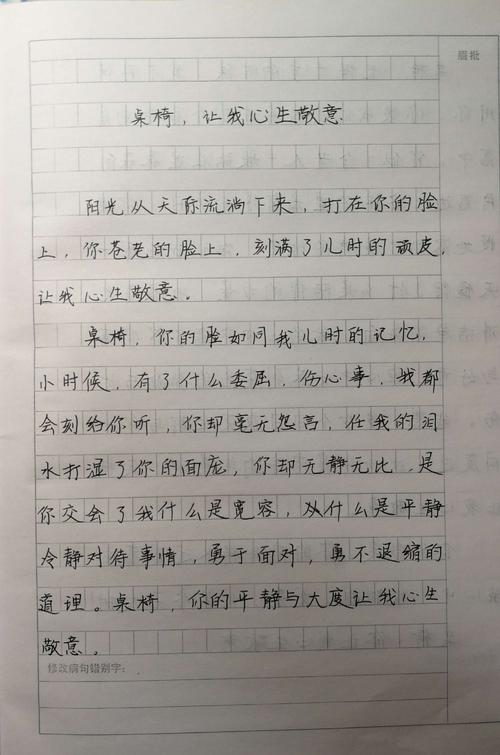 眉批
桌椅，让我心生敬意
阳光从天际流淌下来，打在你的脸
上，你苍老的脸上，刻满了儿时的顽皮，
让我心生敬意。
桌椅，你的脸如同我儿时的记忆，
小时候，有了什么委屈，伤心事，我都
会刻给你听，你却毫无怨言，任我的泪
水打湿了你的面庞，你却无静无比，是
你交会了我什么是宽容，从什么是平静
冷静对待事情，勇于面对，勇不退缩的
道理。桌椅，你的平静与大度让我心生
敬意。
修改病句错别字：